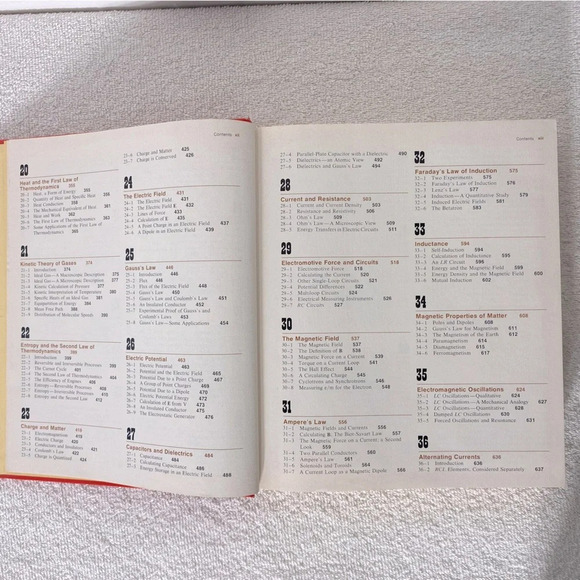 Contents
20
Heat and the First Law of
Thermodynamics 355
20-1 Heat, a Form of Energy 355
20-2 Quantity of Heat and Specific Heat
20-3 Heat Conduction
20-4 The Mechanical Equivalent of Heat 361
20-5 Heat and Work
20-6 The First Law of Thermodynamics
20-7 Some Applications of the First Law of
Thermodynamics
21
Kinetic Theory of Gases 374
21-1 Introduction 374
21-2 Ideal Gas—A Macroscopic Description 375
21-3 Ideal Gas—A Microscopic Description
21-4 Kinetic Calculation of Pressure
21-5 Kinetic Interpretation of Temperature
21-6 Specific Heats of an Ideal Gas
21-7 Equipartition of Energy
21-8 Mean Free Path
21-9 Distribution of Molecular Speeds
22
Entropy and the Second Law of
Thermodynamics
22-1 Introduction
22-2 Reversible and Irreversible Processes
22-3 The Carnot Cycle
22-4 The Second Law of Thermodynamics
22-5 The Efficiency of Engines
22-6 Entropy—Reversible Processes
22-7 Entropy—Irreversible Processes
22-8 Entropy and the Second Law 412
23
Charge and Matter
23-1 Electromagnetism
23-2 Electric Charge
23-3 Conductors and Insulators
23-4 Coulomb's Law
23-5 Charge is Quantized
23-6 Charge and Matter 425
23-7 Charge is Conserved 426
24
The Electric Field 431
24-1 The Electric Field 431
24-2 The Electric Field E
24-3 Lines of Force
24-4 Calculation of E 435
24-5 A Point Charge in an Electric Field 437
24-6 A Dipole in an Electric Field 439
25
Gauss's Law 446
25-1 Introduction 446
25-2 Flux 446
25-3 Flux of the Electric Field 448
25-4 Gauss's Law 450
25-5 Gauss's Law and Coulomb's Law
25-6 An Insulated Conductor 452
25-7 Experimental Proof of Gauss's and
Coulomb's Laws
25-8 Gauss's Law—Some Applications 454
26
Electric Potential 463
26-1 Electric Potential 463
26-2 Potential and the Electric Field 465
26-3 Potential Due to a Point Charge 467
26-4 A Group of Point Charges 469
26-5 Potential Due to a Dipole 470
26-6 Electric Potential Energy 472
26-7 Calculation of E from V
26-8 An Insulated Conductor 475
26-9 The Electrostatic Generator 476
27
Capacitors and Dielectrics 484
27-1 Capacitance 484
27-2 Calculating Capacitance 486
27-3 Energy Storage in an Electric Field 488
Contents xiii
27-4 Parallel-Plate Capacitor with a Dielectric 490
27-5 Dielectrics—an Atomic View 492
27-6 Dielectrics and Gauss's Law 494
28
Current and Resistance 503
28-1 Current and Current Density 503
28-2 Resistance and Resistivity 506
28-3 Ohm's Law 509
28-4 Ohm's Law—A Microscopic View 509
28-5 Energy Transfers in Electric Circuits 511
29
Electromotive Force and Circuits 518
29-1 Electromotive Force 518
29-2 Calculating the Current 520
29-3 Other Single-Loop Circuits 521
29-4 Potential Differences 522
29-5 Multiloop Circuits 524
29-6 Electrical Measuring Instruments 526
29-7 RC Circuits 527
30
The Magnetic Field 537
30-1 The Magnetic Field 537
30-2 The Definition of B 538
30-3 Magnetic Force on a Current 539
30-4 Torque on a Current Loop
30-5 The Hall Effect 544
30-6 A Circulating Charge 545
30-7 Cyclotrons and Synchrotrons 546
30-8 Measuring e/m for the Electron 550
31
Ampere's Law 556
31-1 Magnetic Fields and Currents 556
31-2 Calculating B: The Biot-Savart Law 557
31-3 The Magnetic Force on a Current: a Second
Look 559
31-4 Two Parallel Conductors 560
31-5 Ampere's Law 561
31-6 Solenoids and Toroids 564
31-7 A Current Loop as a Magnetic Dipole 566
32
Faraday's Law of Induction 575
32-1 Two Experiments 575
32-2 Faraday's Law of Induction 576
32-3 Lenz's Law 577
32-4 Induction—A Quantitative Study 579
32-5 Induced Electric Fields 581
32-6 The Betatron 583
33
Inductance 594
33-1 Self-Induction 594
33-2 Calculation of Inductance 595
33-3 An LR Circuit 596
33-4 Energy and the Magnetic Field 599
33-5 Energy Density and the Magnetic Field 600
33-6 Mutual Induction 602
34
Magnetic Properties of Matter 608
34-1 Poles and Dipoles 608
34-2 Gauss's Law for Magnetism 611
34-3 The Magnetism of the Earth 612
34-4 Paramagnetism 614
34-5 Diamagnetism 615
34-6 Ferromagnetism 617
35
Electromagnetic Oscillations 624
35-1 LC Oscillations—Qualitative 624
35-2 LC Oscillations—a Mechanical Analogy 627
35-3 LC Oscillations—Quantitative 628
35-4 Damped LC Oscillations 630
35-5 Forced Oscillations and Resonance 631
36
Alternating Currents 636
36-1 Introduction 636
36-2 RCL Elements, Considered Separately 637